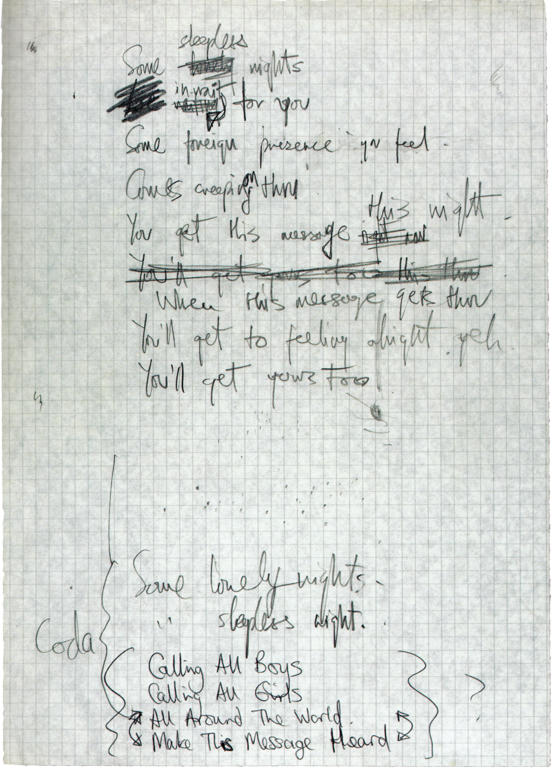 sleepless
Some lonely nights
in wait for you
Some foreign presence you feel.
Comes creeping on thru'
this night
You get this message
You'll get yours too this thru
When this message gets thru
You'll get to feeling alright yeh.
You'll get yours too
Coda
Some lonely nights.
" sleepless night.
Calling All Boys
Calling All Girls
All Around The World.
Make This Message Heard
?